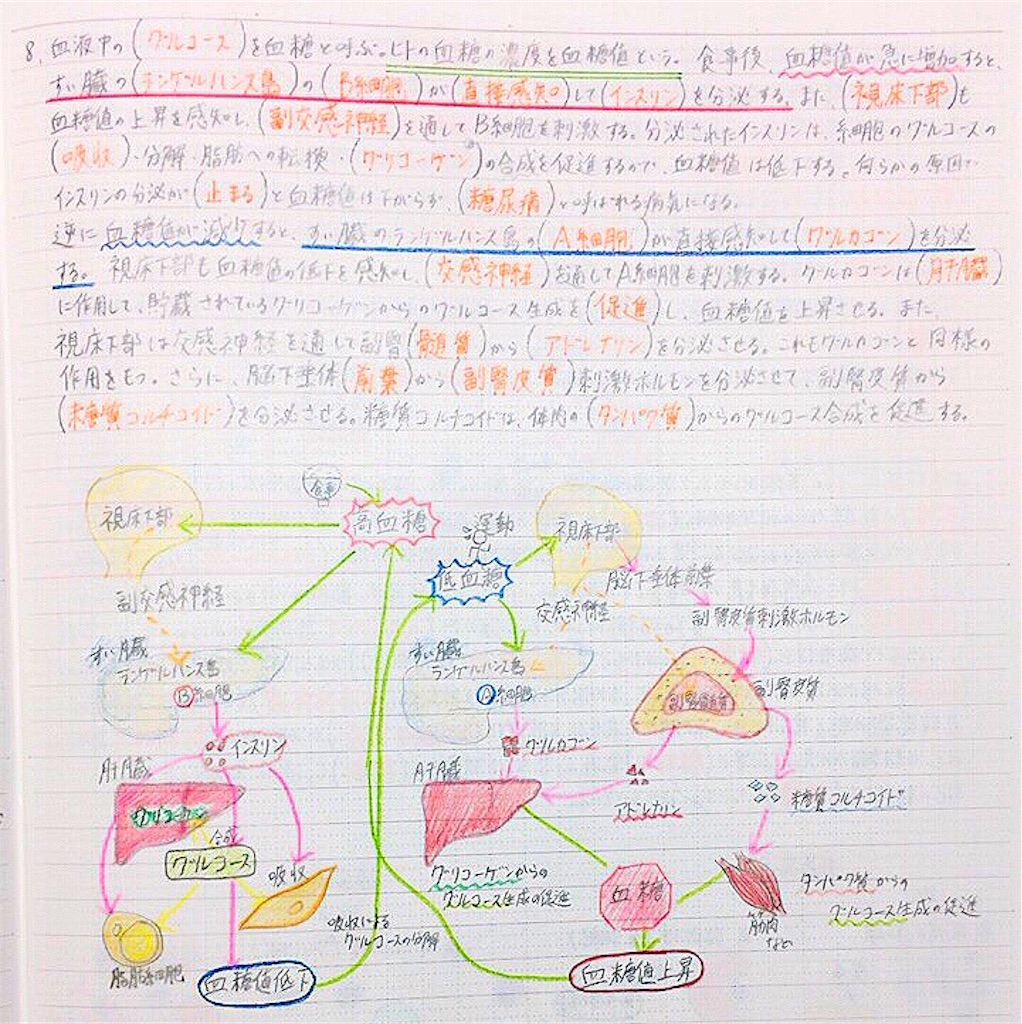 8. 血液中の(グルコース)を血糖と呼ぶ。ヒトの血糖の濃度を血糖値という。食事後、血糖値が急に増加すると、
すい臓の(ランゲルハンス島)の(B細胞)が(直接感知)して(インスリン)を分泌する。また、(視床下部)も
血糖値の上昇を感知し、(副交感神経)を通してB細胞を刺激する。分泌されたインスリンは、細胞のグルコースの
(吸収)・分解・脂肪への転換・(グリコーゲン)の合成を促進するので、血糖値は低下する。何らかの原因で
インスリンの分泌が(止まる)と血糖値は下がらず、(糖尿病)と呼ばれる病気になる。
逆に血糖値が減少すると、すい臓のランゲルハンス島の(A細胞)が直接感知して(グルカゴン)を分泌
する。視床下部も血糖値の低下を感知し、(交感神経)を通してA細胞を刺激する。グルカゴンは(肝臓)
に作用して、貯蔵されているグリコーゲンからのグルコース生成を(促進)し、血糖値を上昇させる。また、
視床下部は交感神経を通して副腎(髄質)から(アドレナリン)を分泌させる。これもグルカゴンと同様の
作用をもつ。さらに、脳下垂体(前葉)から(副腎皮質)刺激ホルモンを分泌させて、副腎皮質から
(糖質コルチコイド)を分泌させる。糖質コルチコイドは、体内の(タンパク質)からのグルコース合成を促進する。
食事
高血糖
視床下部
副交感神経
すい臓
ランゲルハンス島
B細胞
インスリン
肝臓
グリコーゲン
合成
グルコース
吸収
脂肪細胞
吸収による
グルコースの分解
血糖値低下
運動
低血糖
視床下部
脳下垂体前葉
交感神経
副腎皮質刺激ホルモン
すい臓
ランゲルハンス島
A細胞
副腎皮質
副腎髄質
グルカゴン
肝臓
アドレナリン
糖質コルチコイド
グリコーゲンからの
グルコース生成の促進
血糖
筋肉
など
タンパク質からの
グルコース生成の促進
血糖値上昇